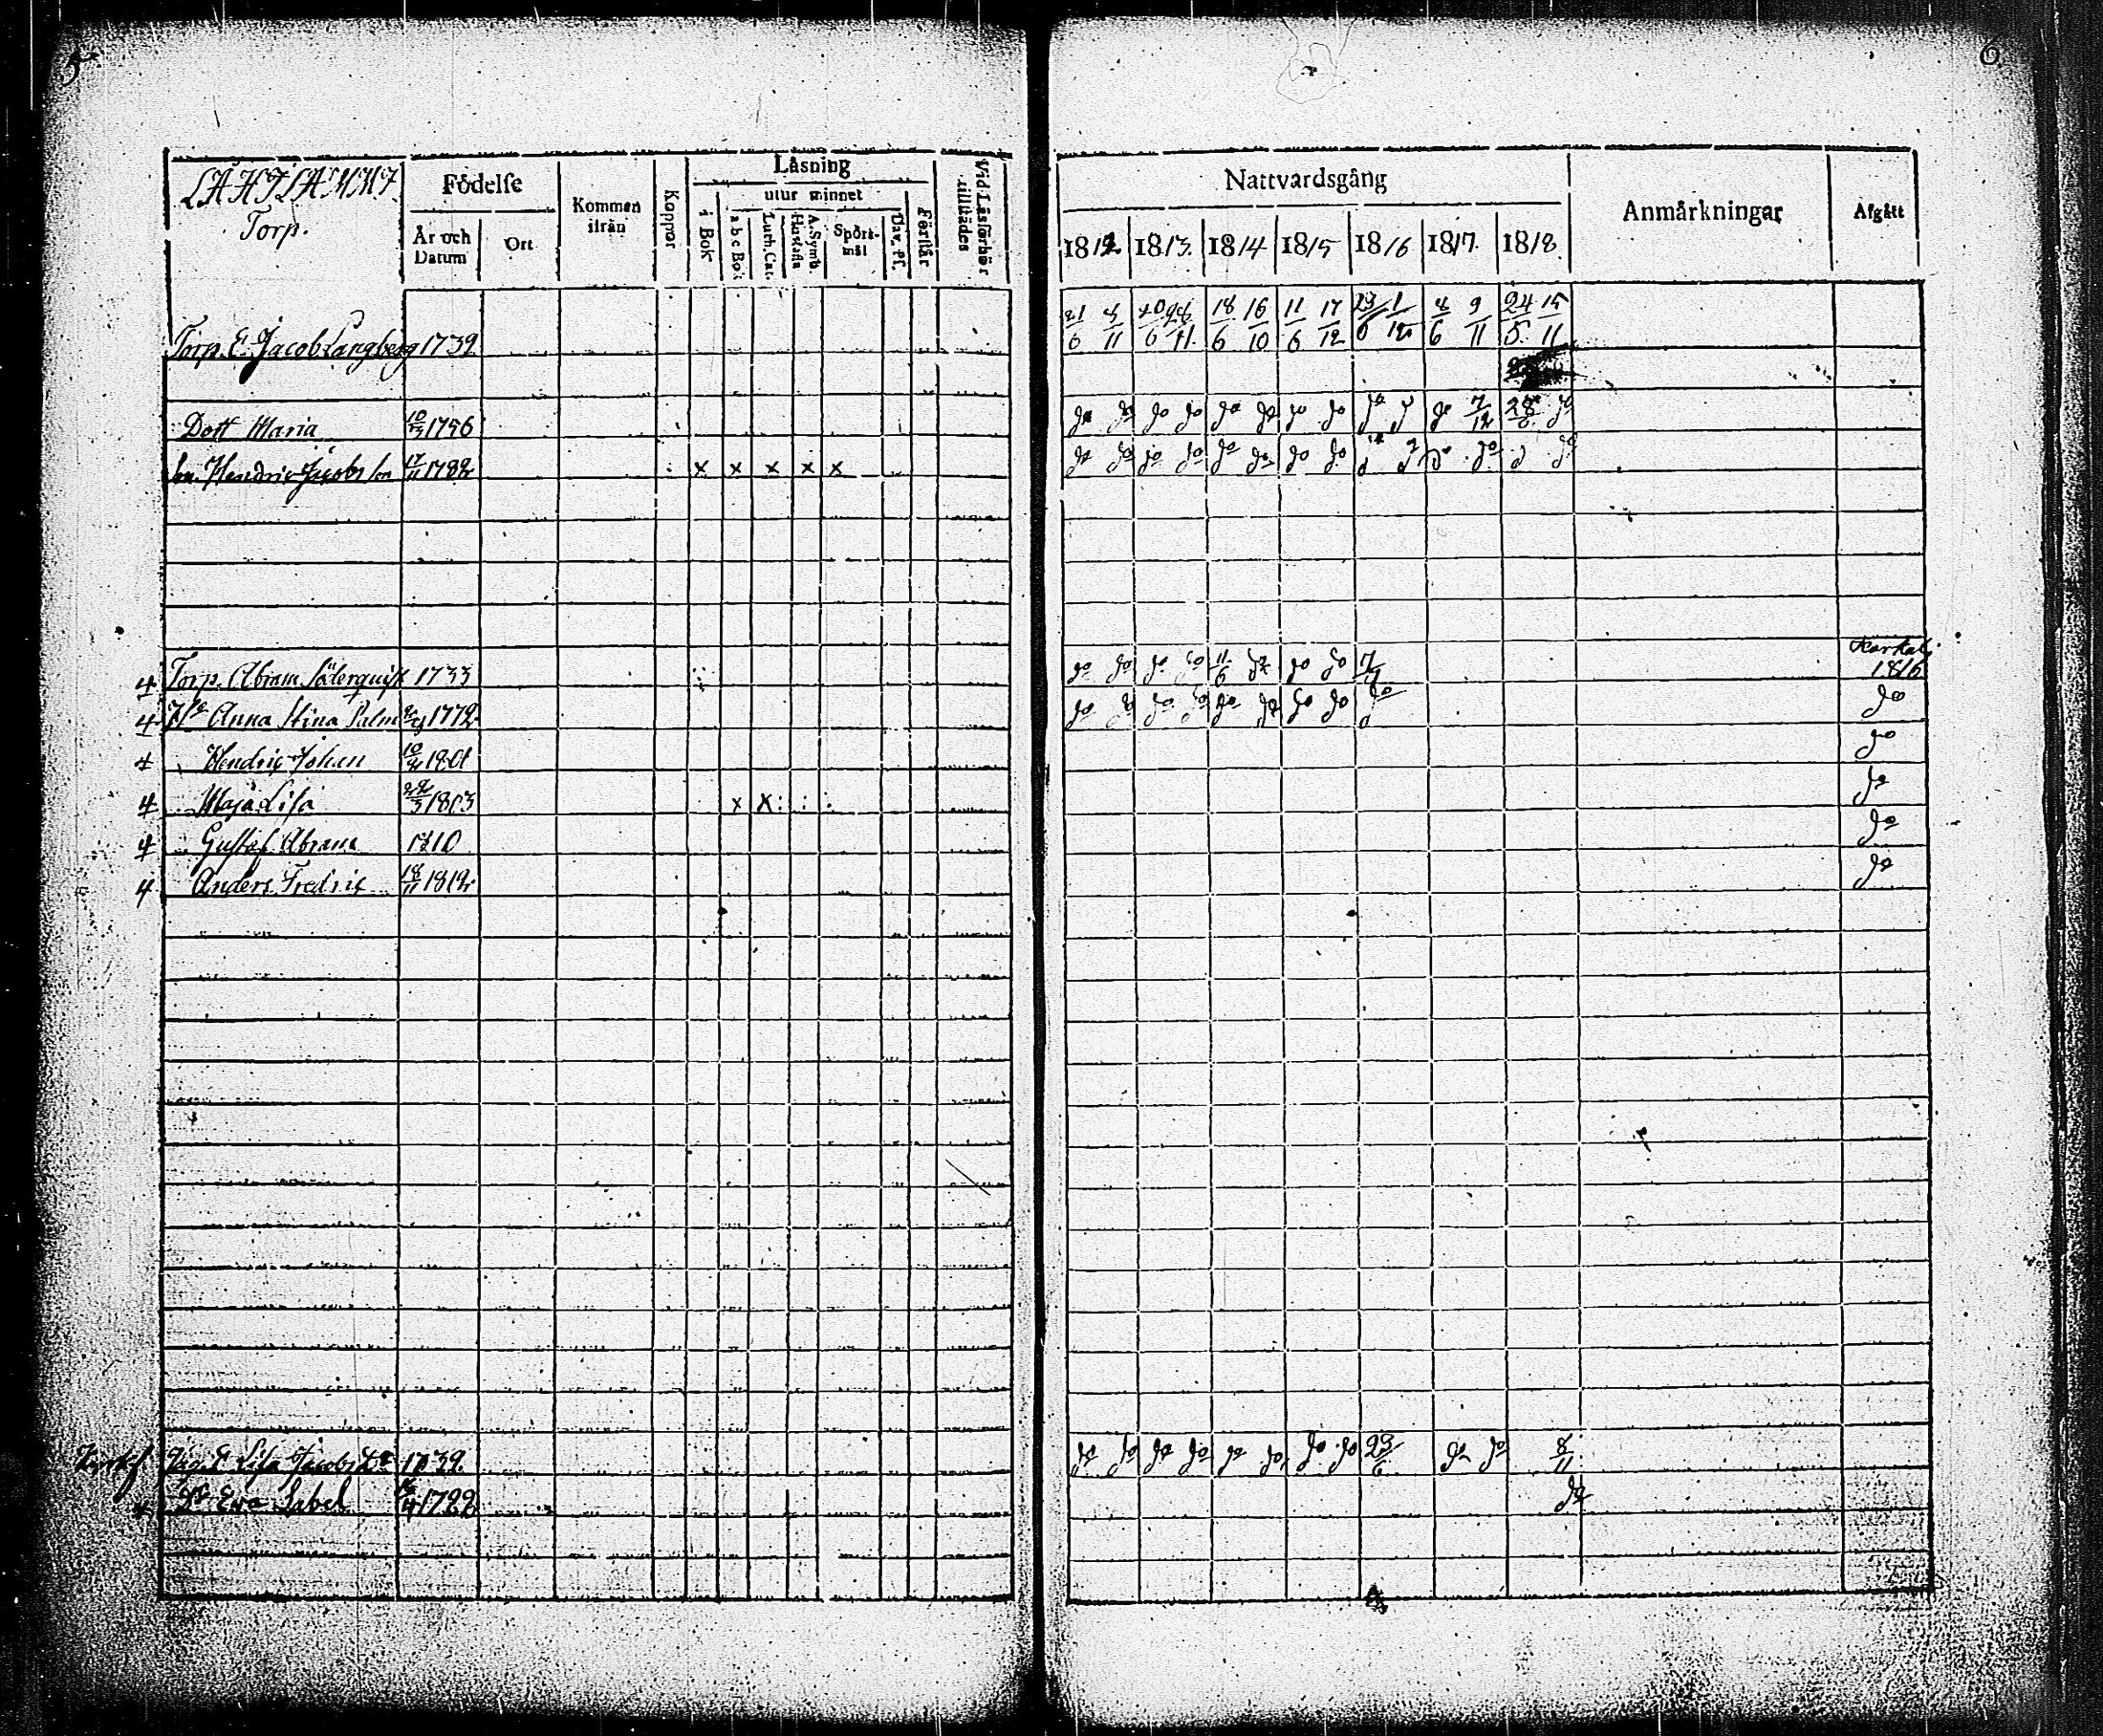 5
LAHTLAMMI
Torp.
Födelse
År och
Datum
Ort
Kommen
ifrån
Koppor
Läsning
utur minnet
i Bok
a b c Bok
Luth. Cat.
Hustafla
A. Symb.
Spörs-
mål
Dav. Ps.
Förstår
Vid Läsförhör
tillstädes
Torp. E. Jacob Långberg 1739
Dott Maria 10/3 1756
Hendric Jacobs son 17/11 1782 x x x x x
4 Torp. Abram Söderquist 1733
4 Hu Anna Stina Palm 1772
4 Hendric Johan 1801
4 Maja Lisa 22/3 1803 x x
4 Gustaf Abram 1810
4 Anders Fredric 18/11 1812
Lisa Jacobs dr 1739
do Eva Sabel 1722
6
Nattvardsgång
Anmärkningar
Afgått
1812 1813. 1814 1815 1816 1817. 1818.
21/6 8/11 20/6 28/11 18/6 16/10 11/6 17/12 23/6 1/12 8/6 9/11 24/5 15/11
do do do do do do do do do do do 7/12 28/8 do
do do do do do do do do do do do do do do
do do do do 11/6 do do do 7/4 Karkali
1816
do do do do do do do do do do
do
do
do
do
do do do do do do do do 23/6 do do 8/11
do